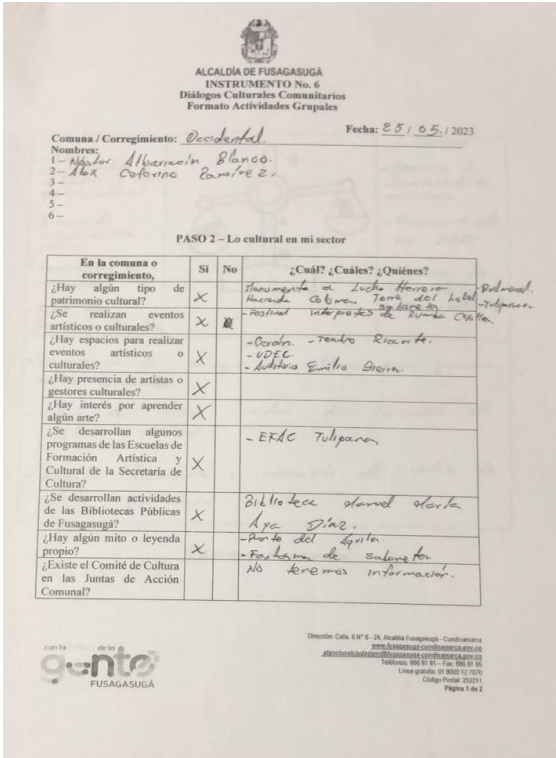 ALCALDÍA DE FUSAGASUGÁ
INSTRUMENTO No. 6
Diálogos Culturales Comunitarios
Formato Actividades Grupales
Fecha: 25/05/2023
Comuna / Corregimiento: Occidental.
Nombres:
1 – Néstor Albarracín Blanco.
2 – Alex Ceferino Ramírez.
3 –
4 –
5 –
6 –
PASO 2 – Lo cultural en mi sector
En la comuna o corregimiento,
Sí
No
¿Cuál? ¿Cuáles? ¿Quiénes?
¿Hay algún tipo de
patrimonio cultural?
X
Monumento a Lucho Herrera - Balmoral
Hacienda Torre del
- Tulipanes
¿Se realizan eventos
artísticos o culturales?
X
- Festival interpretes de Rumba Criolla
¿Hay espacios para realizar
eventos artísticos o
culturales?
X
- Teatro Ricaurte.
- UDEC.
- Auditorio Emilio Sierra.
¿Hay presencia de artistas o
gestores culturales?
X
¿Hay interés por aprender
algún arte?
X
¿Se desarrollan algunos
programas de las Escuelas de
Formación Artística y
Cultural de la Secretaría de
Cultura?
X
- EFAC Tulipanes
¿Se desarrollan actividades
de las Bibliotecas Públicas
de Fusagasugá?
X
Biblioteca
Aya Díaz.
¿Hay algún mito o leyenda
propio?
X
- del Aguila.
- Fantasma de Sabaneta
¿Existe el Comité de Cultura
en las Juntas de Acción
Comunal?
No tenemos información.
con la de la
gente
FUSAGASUGÁ
Dirección: Calle. 6 N° 6 - 24, Alcaldía Fusagasugá – Cundinamarca
www.fusagasuga-cundinamarca.gov.co
atencionalciudadano@fusagasuga-cundinamarca.gov.co
Teléfonos: 886 81 81 – Fax: 886 81 86
Línea gratuita: 01 8000 12 7070
Código Postal: 252211
Página 1 de 2